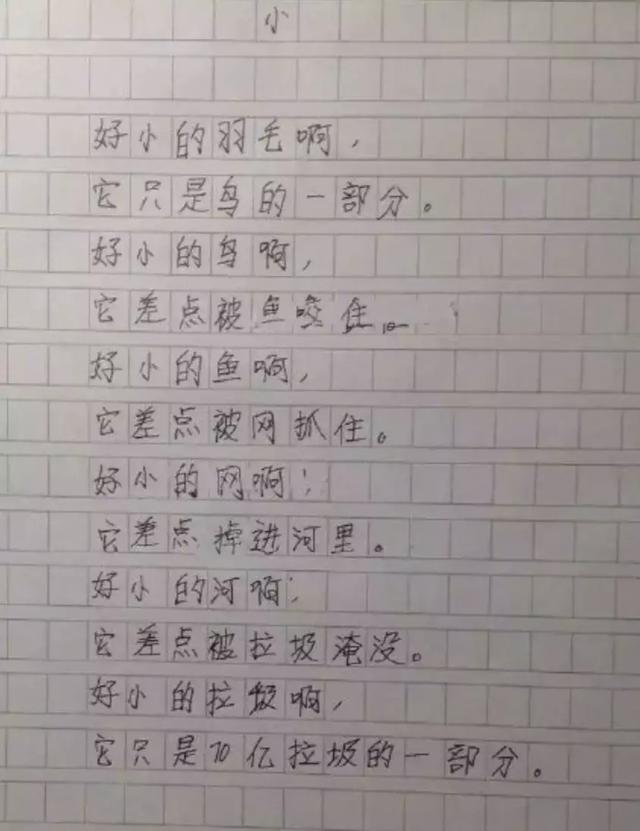 小
好小的羽毛啊，
它只是鸟的一部分。
好小的鸟啊，
它差点被鱼咬住。
好小的鱼啊，
它差点被网抓住。
好小的网啊！
它差点掉进河里。
好小的河啊，
它差点被垃圾淹没。
好小的垃圾啊，
它只是70亿垃圾的一部分。